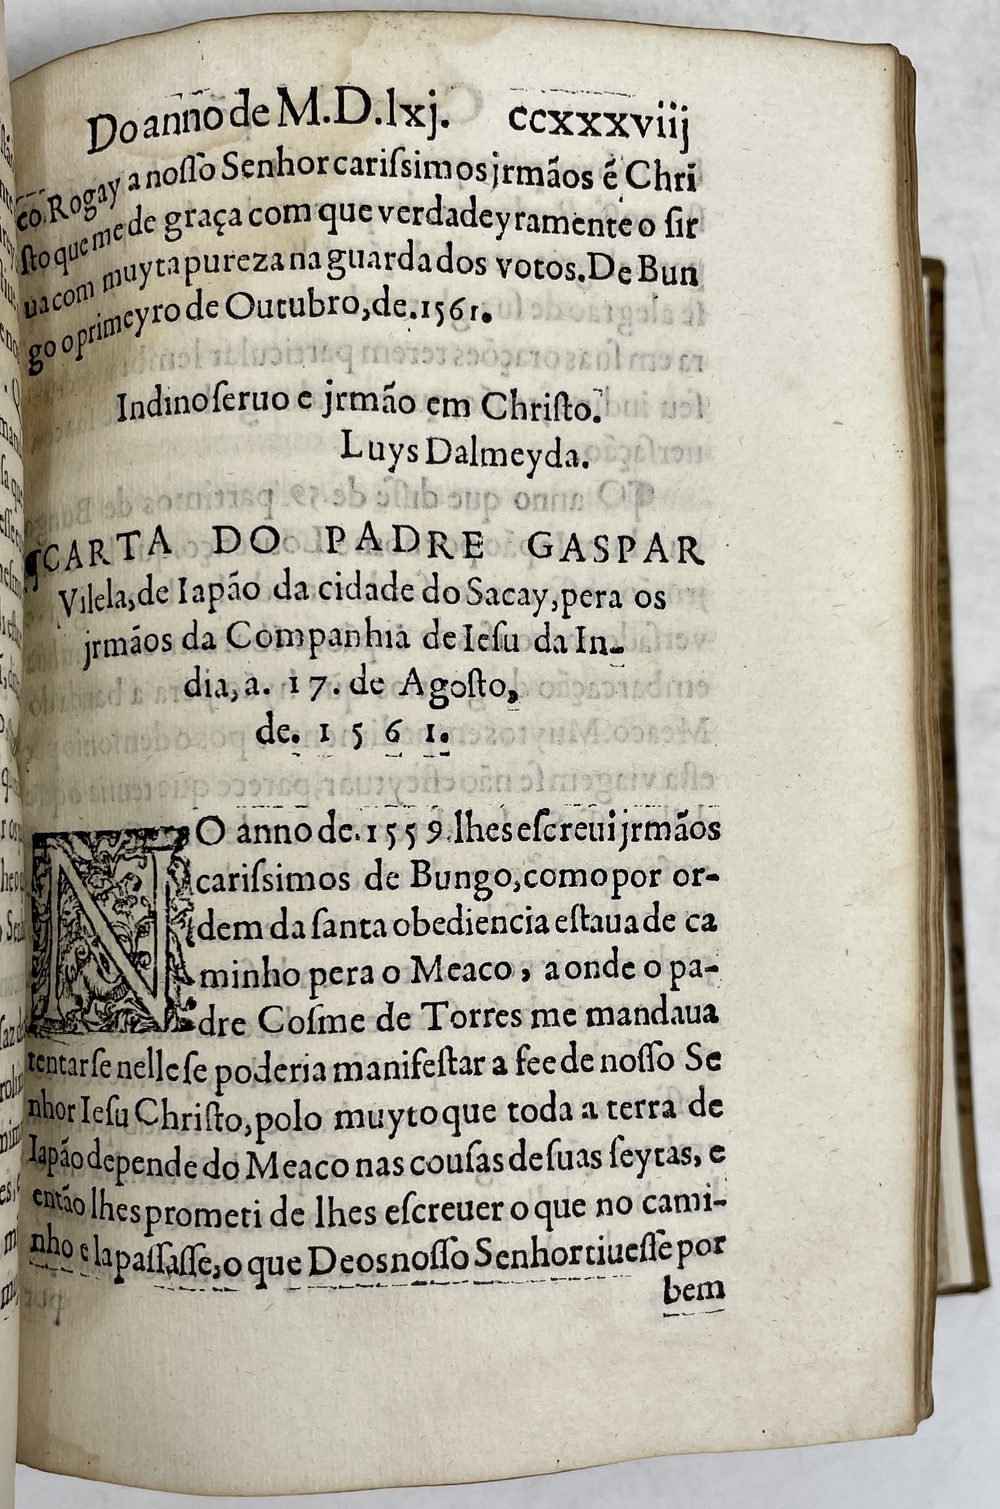 Do anno de M.D.lxj. ccxxxviij
co. Rogay a noſſo Senhor cariſsimos jrmãos ẽ Chri
ſto que me de graça com que verdadeyramente o ſir
ua com muyta pureza na guarda dos votos. De Bun
go o primeyro de Outubro, de. 1561.
Indino ſeruo e jrmão em Chriſto.
Luys Dalmeyda.
¶CARTA DO PADRE GASPAR
Vilela, de Iapão da cidade do Sacay, pera os
jrmãos da Companhia de Ieſu da In-
dia, a. 17. de Agoſto,
de. 1561.
NO anno de. 1559. lhes eſcreui jrmãos
cariſsimos de Bungo, como por or-
dem da ſanta obediencia eſtaua de ca
minho pera o Meaco, a onde o pa-
dre Coſme de Torres me mandaua
tentar ſe nelle ſe poderia manifeſtar a fee de noſſo Se
nhor Ieſu Chriſto, polo muyto que toda a terra de
Iapão depende do Meaco nas couſas de ſuas ſeytas, e
então lhes prometi de lhes eſcreuer o que no cami-
nho e la paſſaſſe, o que Deos noſſo Senhor tiueſſe por
bem